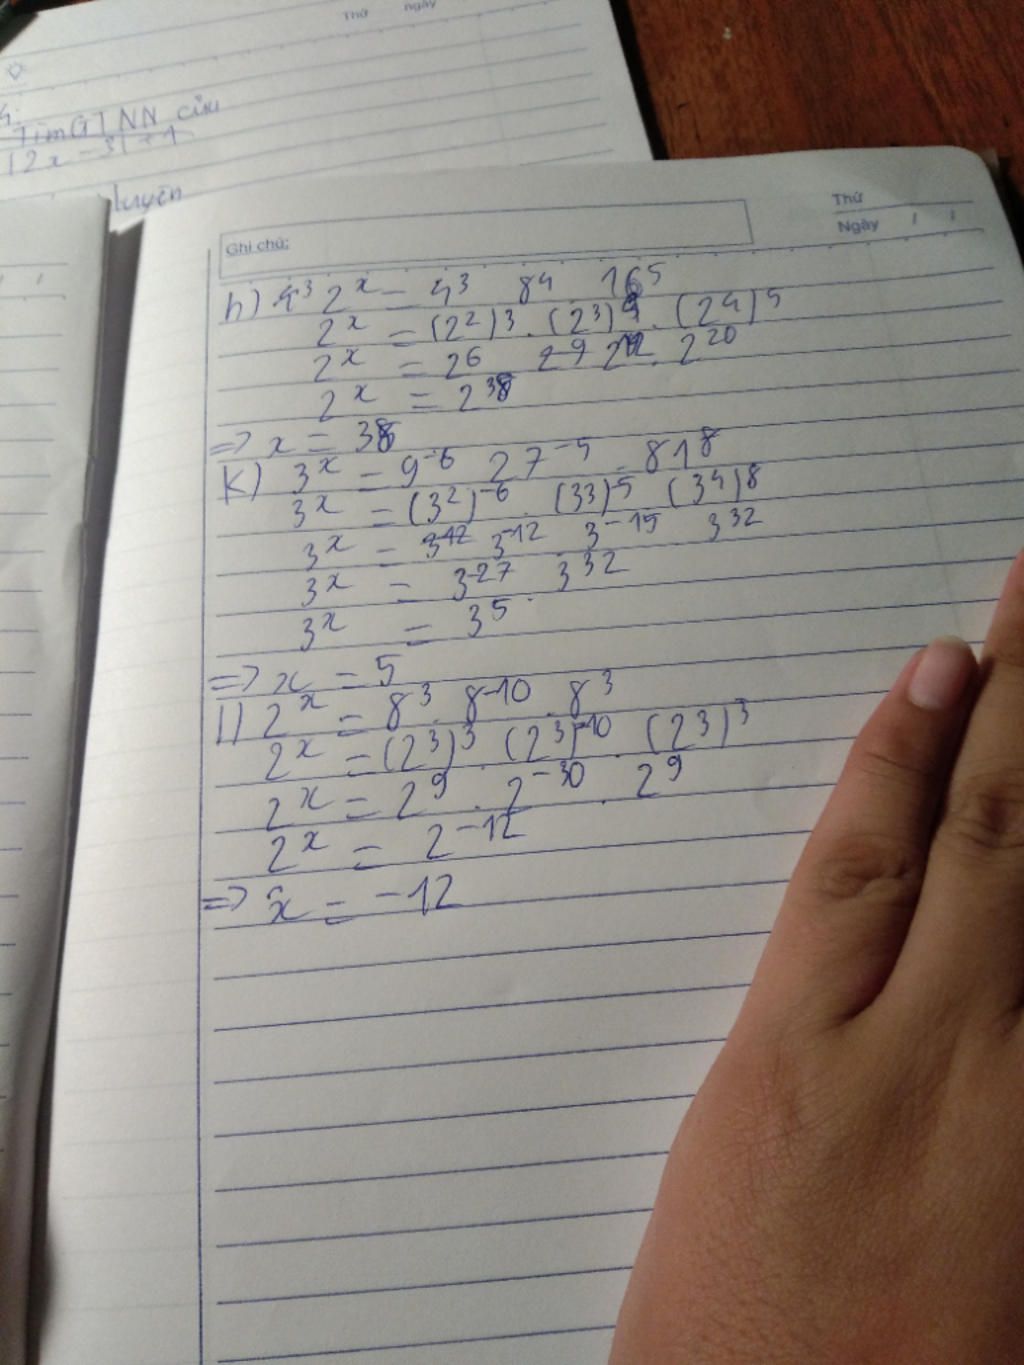 Thứ ngày
Tìm GTNN của
|2x - 3| + 1
luyện
Thứ
Ghi chú:
Ngày / /
h) 2^x = 4^3 8^4 16^5
2^x = (2^2)^3 . (2^3)^4 . (2^4)^5
2^x = 2^6 2^12 . 2^20
2^x = 2^38
=> x = 38
k) 3^x = 9^-6 27^-5 . 81^8
3^x = (3^2)^-6 . (3^3)^-5 (3^4)^8
3^x = 3^-12 . 3^-15 3^32
3^x = 3^-27 . 3^32
3^x = 3^5
=> x = 5
l) 2^x = 8^3 . 8^-10 . 8^3
2^x = (2^3)^3 . (2^3)^-10 . (2^3)^3
2^x = 2^9 . 2^-30 . 2^9
2^x = 2^-12
=> x = -12